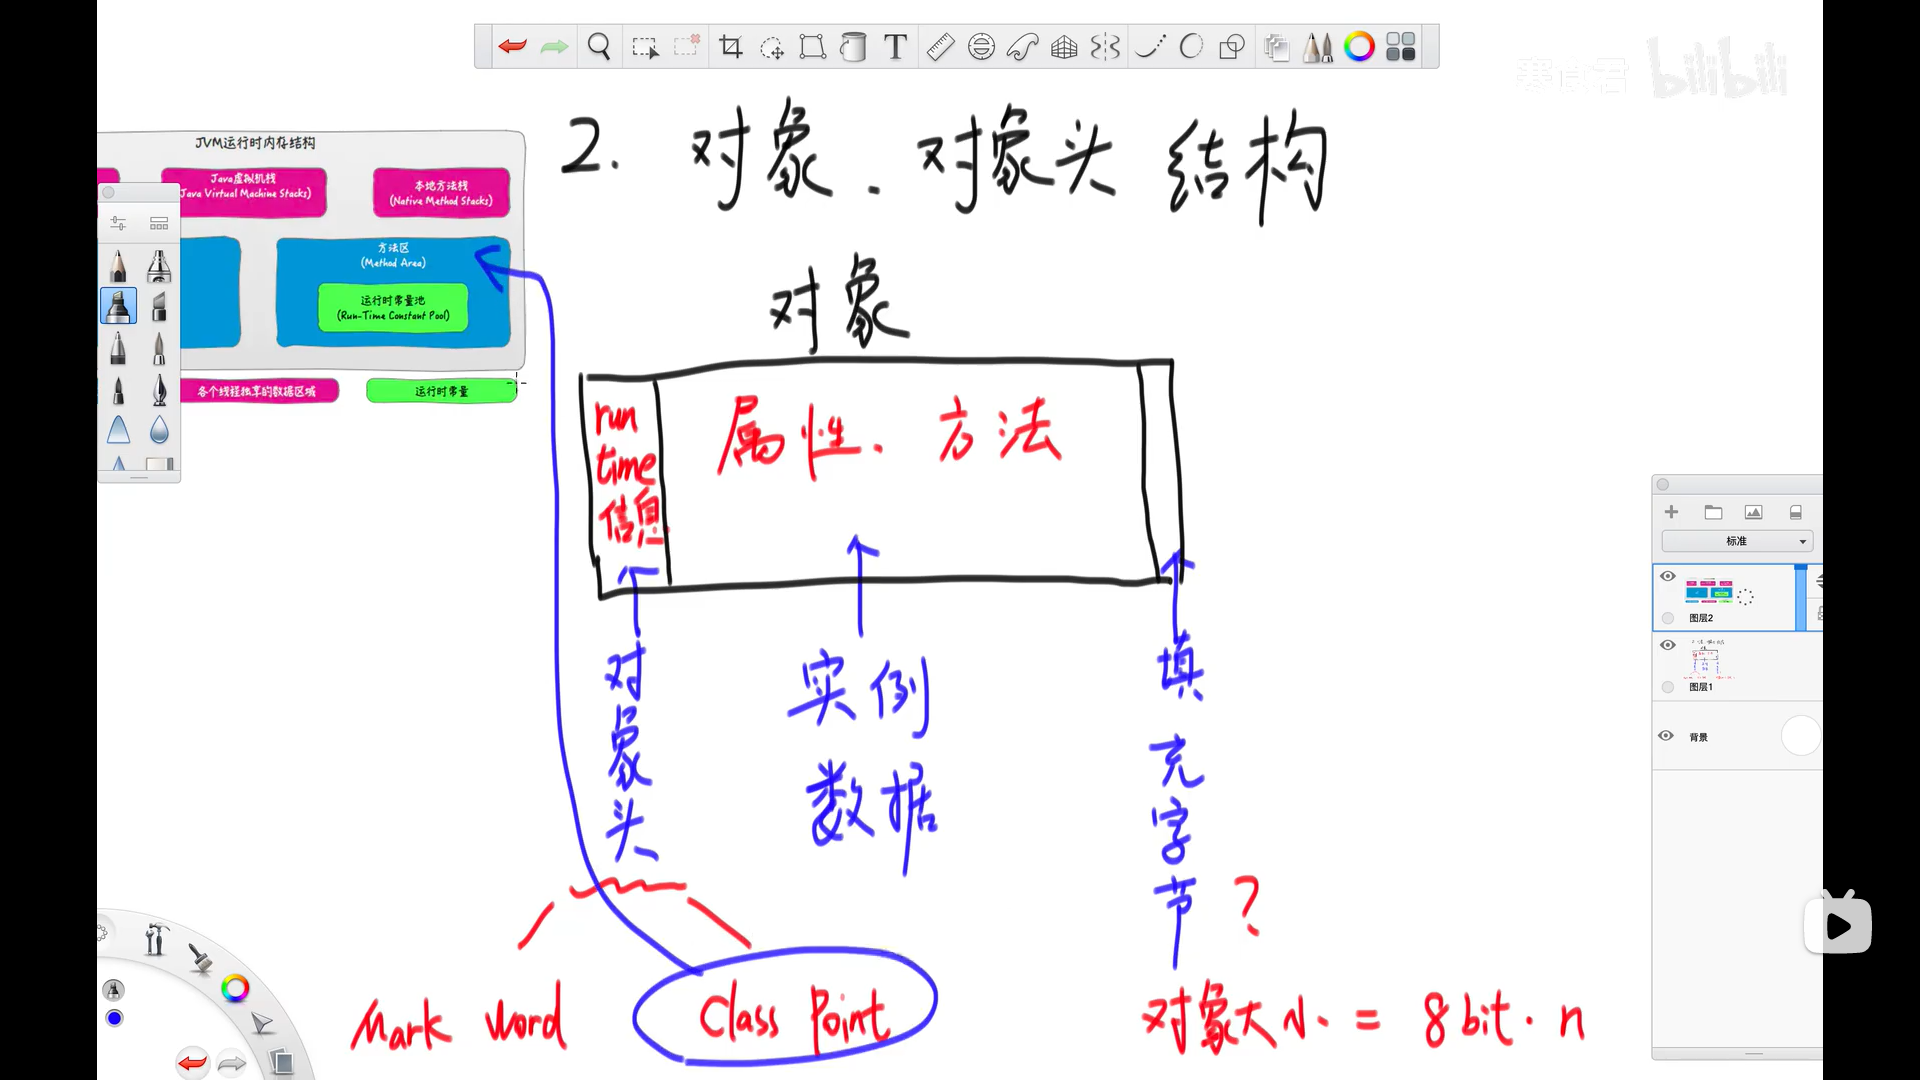 寒食君 bilibili
2. 对象、对象头 结构
JVM运行时内存结构
Java虚拟机栈
Java Virtual Machine Stacks)
本地方法栈
(Native Method Stacks)
方法区
(Method Area)
运行时常量池
(Run-Time Constant Pool)
各个线程独享的数据区域
运行时常量
对象
run
time
信息
属性、方法
对象头
实例
数据
填充字节?
Mark Word
Class Point
对象大小 = 8bit·n
标准
图层2
图层1
背景